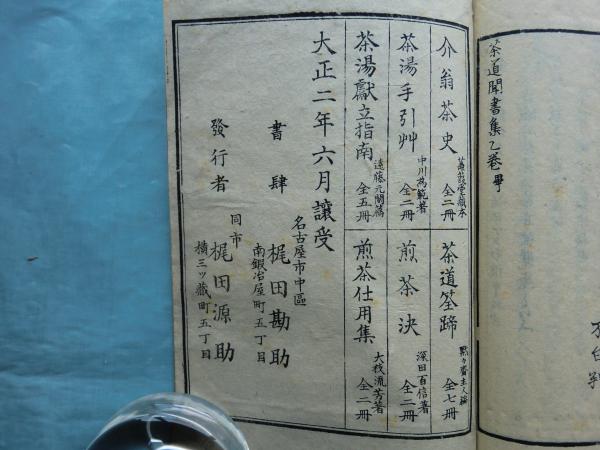 茶道聞書集乙巻畢
介翁茶史 蒹葭堂蔵本 全二冊
茶道筌蹄 黙々斎主人編 全七冊
茶湯手引艸 中川為範著 全二冊
煎茶決 深田百信著 全二冊
茶湯獻立指南 遠藤元閑篇 全五冊
煎茶仕用集 大枝流芳著 全二冊
大正二年六月讓受
名古屋市中區
南鍛冶屋町五丁目
書肆 梶田勘助
同市
橫三ツ藏町五丁目
發行者 梶田源助